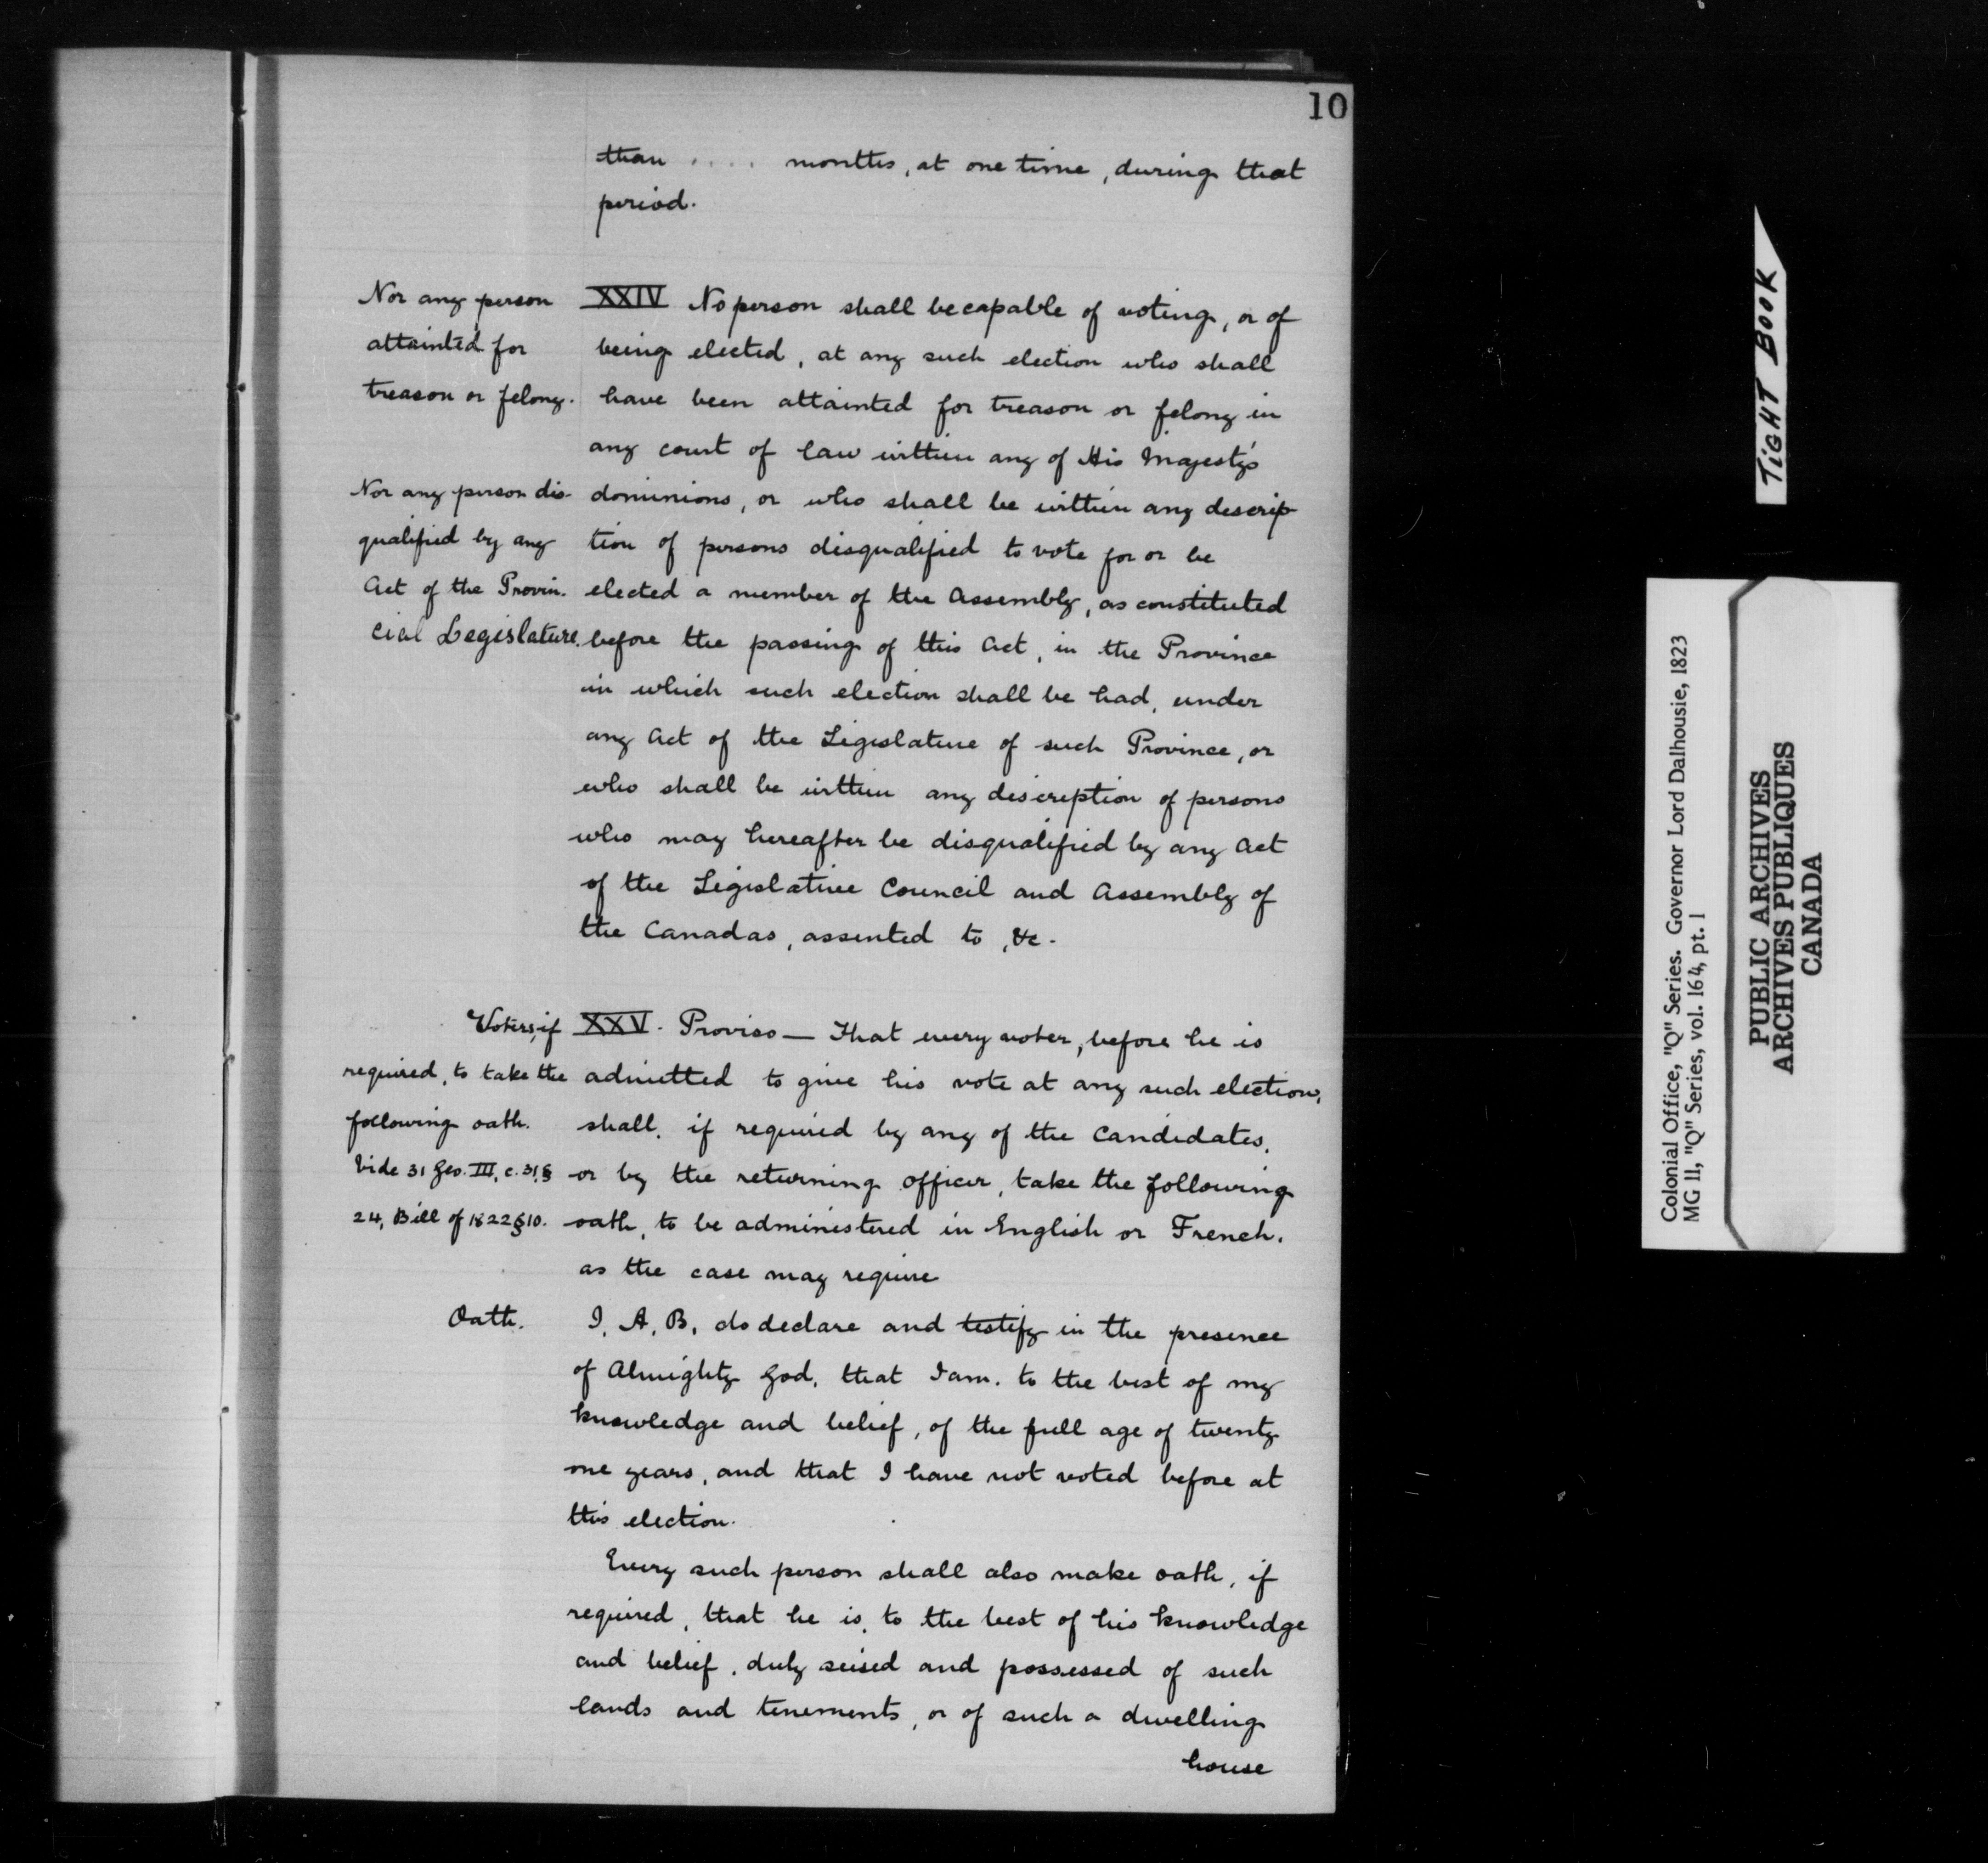 10
than .... months, at one time, during that
period.
Nor any person
attainted for
treason or felony.
XXIV No person shall be capable of voting, or of
being elected, at any such election who shall
have been attainted for treason or felony in
any court of law within any of His Majesty's
Nor any person dis-
qualified by any
Act of the Provin-
cial Legislature.
dominions, or who shall be within any descrip-
tion of persons disqualified to vote for or be
elected a member of the Assembly, as constituted
before the passing of this Act, in the Province
in which such election shall be had, under
any Act of the Legislature of such Province, or
who shall be within any description of persons
who may hereafter be disqualified by any Act
of the Legislative Council and Assembly of
the Canadas, assented to, &c.
Voters, if
required, to take the
following oath.
Vide 31 Geo. III, c. 31, §
24, Bill of 1822 § 10.
XXV. Proviso — That every voter, before he is
admitted to give his vote at any such election,
shall, if required by any of the Candidates,
or by the returning officer, take the following
oath, to be administered in English or French,
as the case may require
Oath.
I, A, B, do declare and testify in the presence
of Almighty God, that I am, to the best of my
knowledge and belief, of the full age of twenty
one years, and that I have not voted before at
this election.
Every such person shall also make oath, if
required, that he is, to the best of his knowledge
and belief, duly seised and possessed of such
lands and tenements, or of such a dwelling
house
TIGHT BOOK
Colonial Office, "Q" Series. Governor Lord Dalhousie, 1823
MG 11, "Q" Series, vol. 164, pt. 1
PUBLIC ARCHIVES
ARCHIVES PUBLIQUES
CANADA